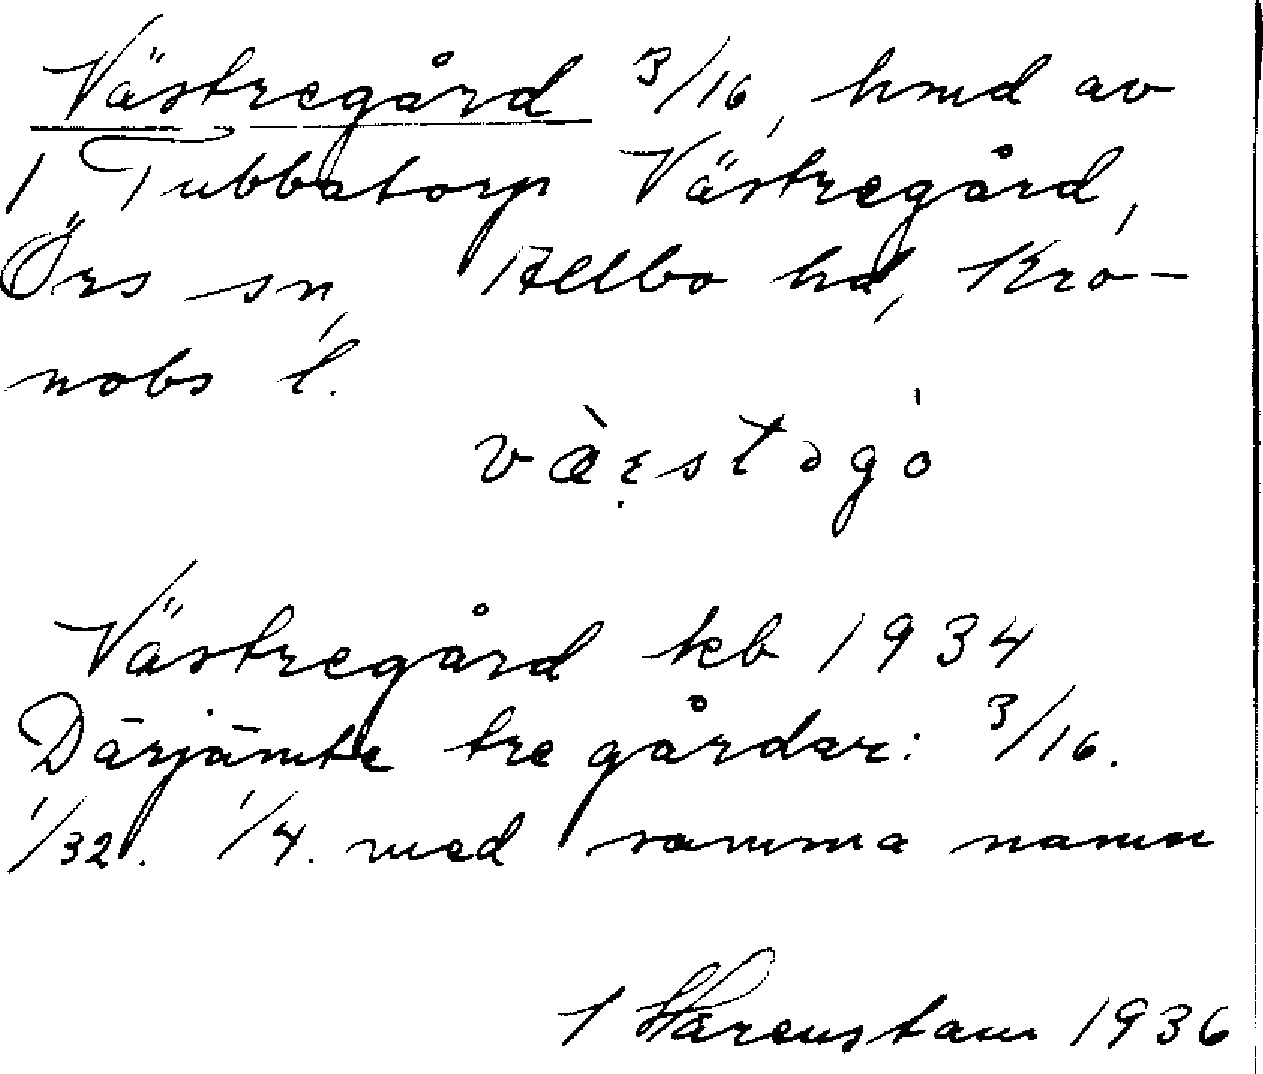 Västregård 3/16, hmd av
1 Tubbatorp Västregård,
Örs sn, Allbo hd, Kro-
nobs l.
Västregård kb 1934
Därjämte tre gårdar: 3/16.
1/32. 1/4. med samma namn
1936